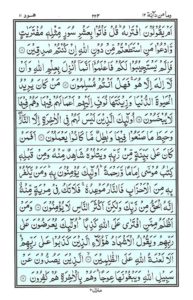 ومامن دآبة ١٢ ٢٢٣ هود ١١
أَمْ يَقُولُونَ افْتَرَىٰهُ قُلْ فَأْتُوا بِعَشْرِ سُوَرٍ مِثْلِهِ مُفْتَرَيَٰتٍ
وَادْعُوا مَنِ اسْتَطَعْتُمْ مِنْ دُونِ اللَّهِ إِنْ كُنْتُمْ صَٰدِقِينَ ۝
فَإِلَّمْ يَسْتَجِيبُوا لَكُمْ فَاعْلَمُوا أَنَّمَا أُنْزِلَ بِعِلْمِ اللَّهِ وَأَنْ
لَا إِلَٰهَ إِلَّا هُوَ فَهَلْ أَنْتُمْ مُسْلِمُونَ ۝ مَنْ كَانَ يُرِيدُ
الْحَيَوٰةَ الدُّنْيَا وَزِينَتَهَا نُوَفِّ إِلَيْهِمْ أَعْمَٰلَهُمْ فِيهَا وَهُمْ فِيهَا
لَا يُبْخَسُونَ ۝ أُولَٰئِكَ الَّذِينَ لَيْسَ لَهُمْ فِي الْآخِرَةِ إِلَّا النَّارُ
وَحَبِطَ مَا صَنَعُوا فِيهَا وَبَٰطِلٌ مَا كَانُوا يَعْمَلُونَ ۝ أَفَمَنْ
كَانَ عَلَىٰ بَيِّنَةٍ مِنْ رَبِّهِ وَيَتْلُوهُ شَاهِدٌ مِنْهُ وَمِنْ قَبْلِهِ
كِتَٰبُ مُوسَىٰ إِمَامًا وَرَحْمَةً أُولَٰئِكَ يُؤْمِنُونَ بِهِ وَمَنْ يَكْفُرْ
بِهِ مِنَ الْأَحْزَابِ فَالنَّارُ مَوْعِدُهُ فَلَا تَكُ فِي مِرْيَةٍ مِنْهُ
إِنَّهُ الْحَقُّ مِنْ رَبِّكَ وَلَٰكِنَّ أَكْثَرَ النَّاسِ لَا يُؤْمِنُونَ ۝
وَمَنْ أَظْلَمُ مِمَّنِ افْتَرَىٰ عَلَى اللَّهِ كَذِبًا أُولَٰئِكَ يُعْرَضُونَ عَلَىٰ
رَبِّهِمْ وَيَقُولُ الْأَشْهَادُ هَٰؤُلَاءِ الَّذِينَ كَذَبُوا عَلَىٰ رَبِّهِمْ
أَلَا لَعْنَةُ اللَّهِ عَلَى الظَّٰلِمِينَ ۝ الَّذِينَ يَصُدُّونَ عَنْ
سَبِيلِ اللَّهِ وَيَبْغُونَهَا عِوَجًا وَهُمْ بِالْآخِرَةِ هُمْ كَٰفِرُونَ ۝